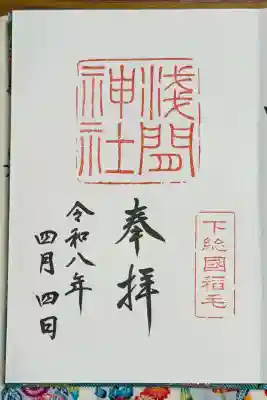 下総國稲毛
浅間神社
奉拝
令和八年
四月四日